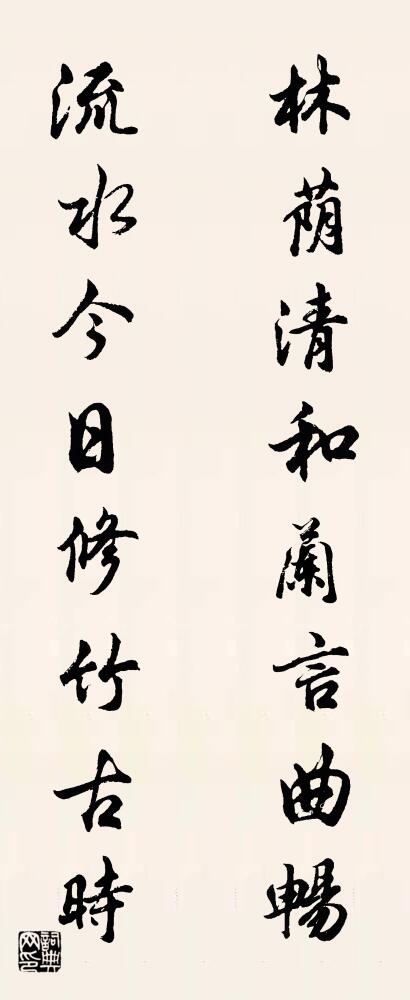 林荫清和蘭言曲暢
流水今日修竹古時
詞典网印